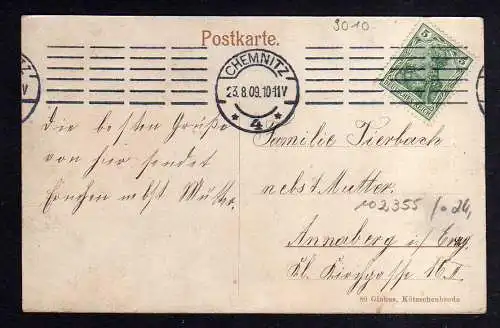 3010.
Postkarte.
CHEMNITZ
23.8.09.10-11V
* 4 *
5 5
die besten Grüße
von hier sendet
nebst Mutter.
Familie Tierbach
nebst Mutter.
102355
Annaberg i/ Erzg.
Kl. Kirchgasse
89 Globus, Kötzschenbroda